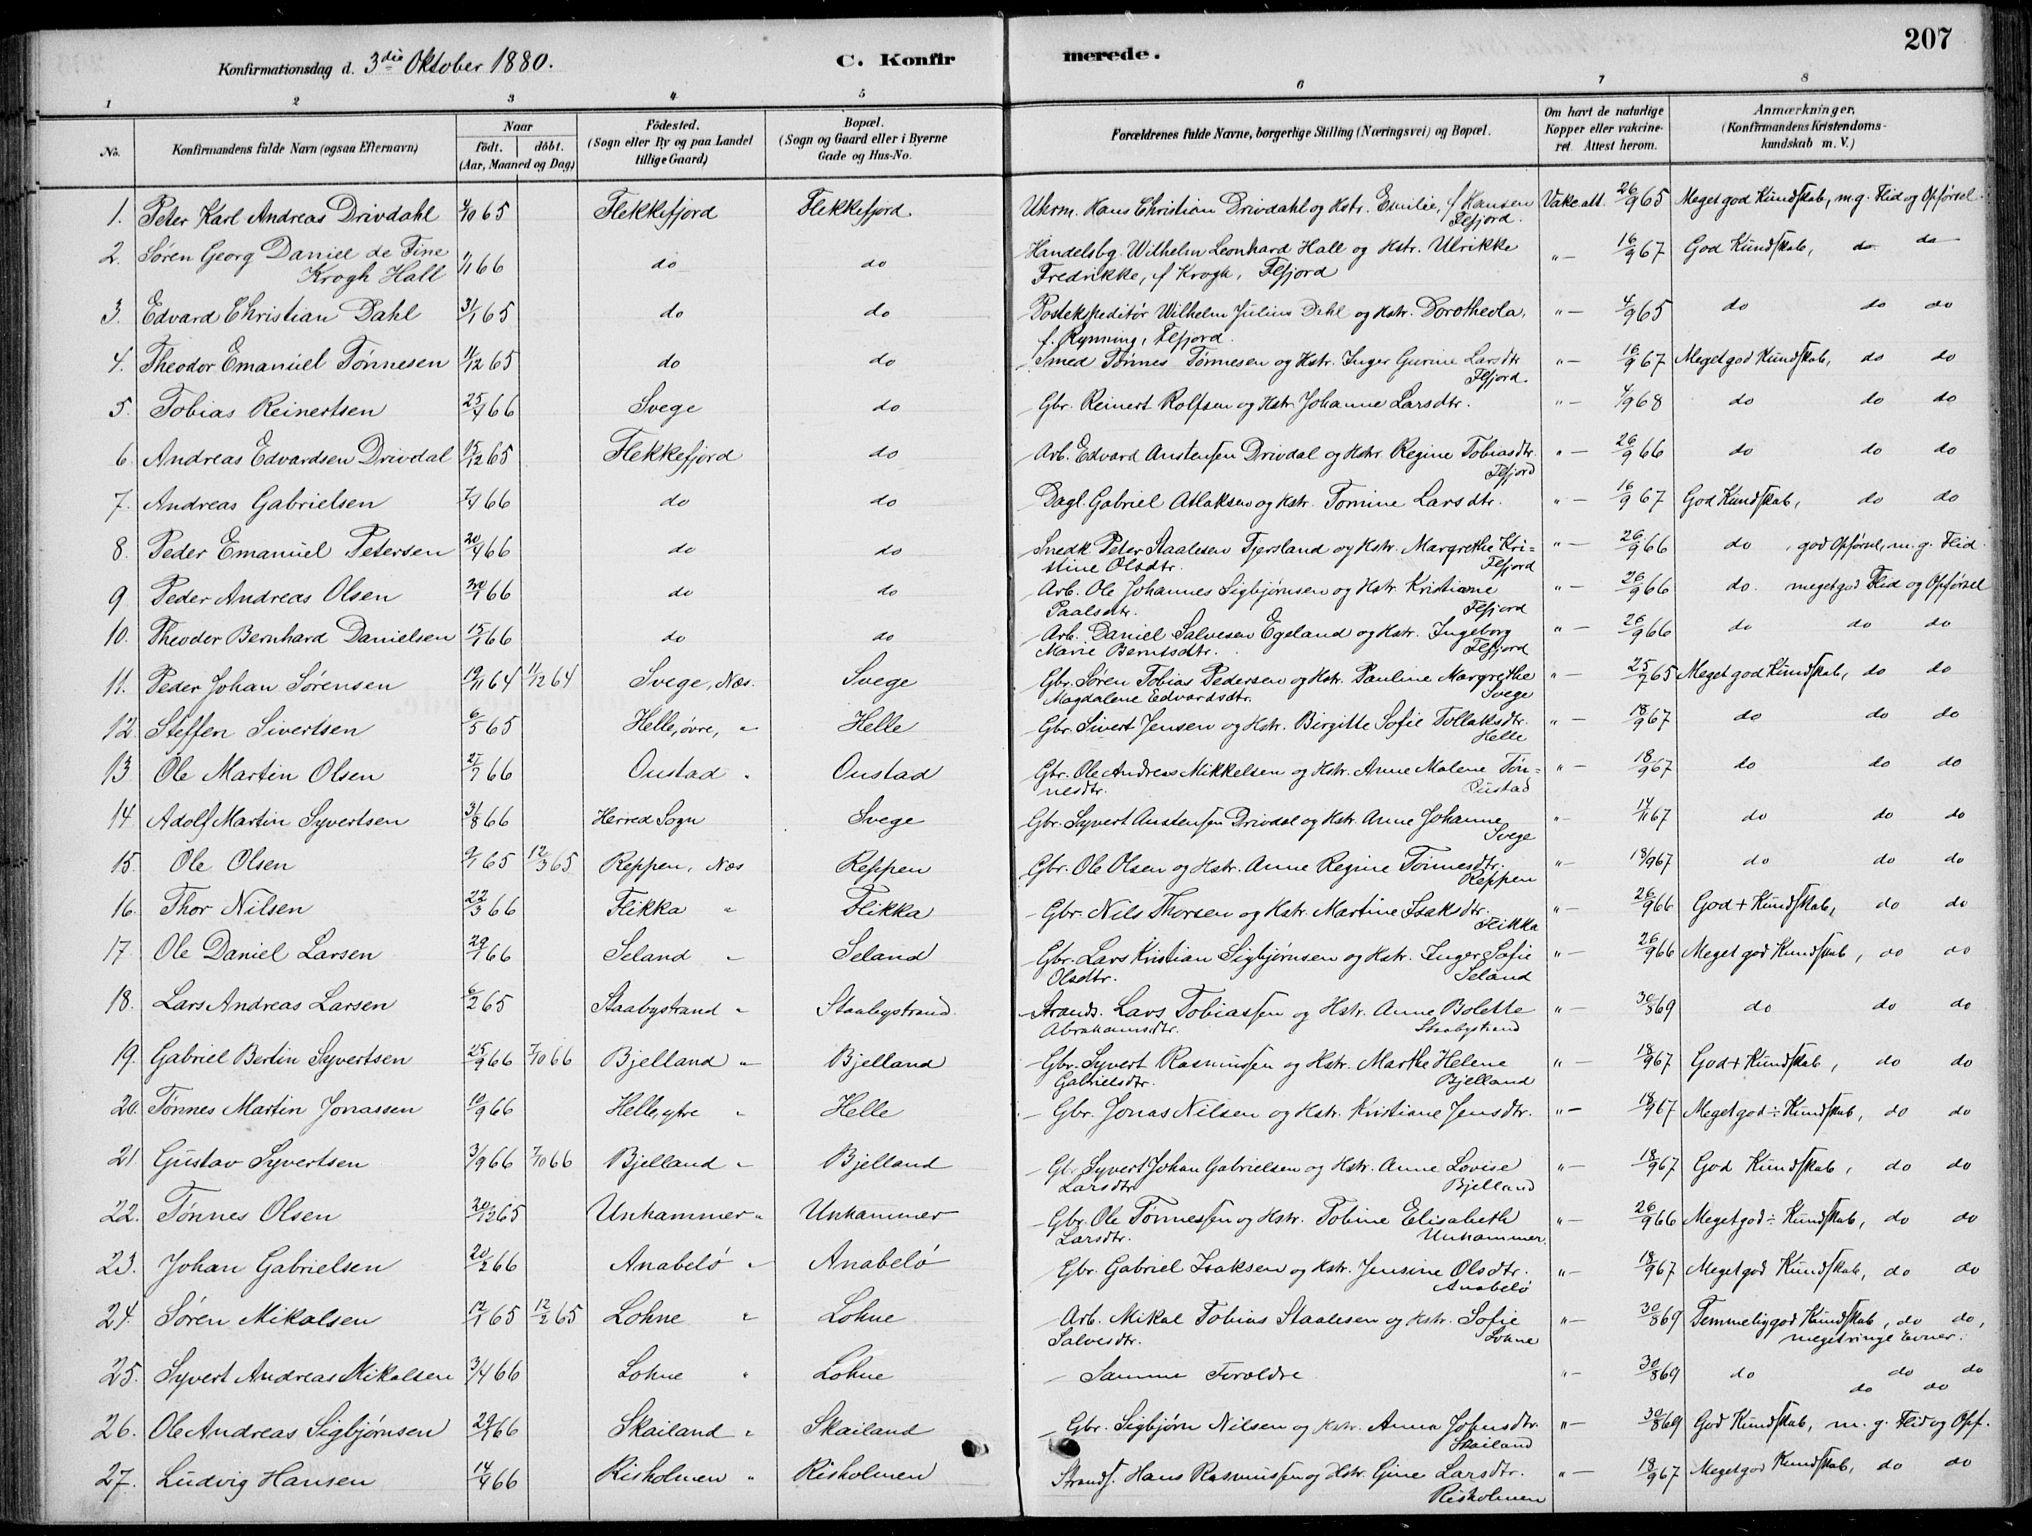 207
Konfirmationsdag d. 3die Oktober 1880.
C. Konfirmerede.
1 2 3 4 5 6 7 8
No.
Konfirmandens fulde Navn (ogsaa Efternavn)
Naar
født. døbt.
(Aar, Maaned og Dag)
Födested.
(Sogn eller By og paa Landet
tillige Gaard)
Bopæl.
(Sogn og Gaard eller i Byerne
Gade og Hus-No.
Forældrenes fulde Navne, borgerlige Stilling (Næringsvei) og Bopæl.
Om havt de naturlige
Kopper eller vakcine-
ret. Attest herom.
Anmærkninger,
(Konfirmandens Kristendoms-
kundskab m. V.)
1. Peter Karl Andreas Drivdahl 10 65 Flekkefjord Flekkefjord Ukrm. Hans Christian Drivdahl og Hstr. Emilie, f Hansen Vakc. att. 26/9 65 Meget god Kundskab, m.g. Flid og Opførsel.
Flfjord.
2. Søren Georg Daniel de Fine 66 do do Handelsbg. Wilhelm Leonhard Hall og Hstr. Ulrikke " — 16/9 67 God Kundskab, do do
Krogh Hall Fredrikke, f Krogh, Flfjord
3. Edvard Christian Dahl 31/1 65 do do Postekspeditör Wilhelm Julius Dahl og Hstr. Dorothea " — 4/9 65 do do do
f. Rynning, Flfjord.
4. Theodor Emanuel Tønnesen 11/12 65 do do Smed Tønnes Tønnesen og Hstr. Inger Gurine Larsdtr " — 16/9 67 Meget god Kundskab, do do
Flfjord.
5. Tobias Reinertsen 25/4 66 Svege do Gbr. Reinert Rolfsen og Hstr. Johanne Larsdtr. " — 4/9 68 do do do
6. Andreas Edvardsen Drivdal 15/12 65 Flekkefjord do Arb. Edvard Austensen Drivdal og Hstr. Regine Tobiasdtr. " — 26/9 66 do do do
Flfjord
7. Andreas Gabrielsen 66 do do Dagl. Gabriel Atlaksen og Hstr. Tomine Larsdtr. " — 16/9 67 God Kundskab, do do
8. Peder Emanuel Petersen 20/4 66 do do Snedk Peter Staalesen Fjersland og Hstr. Margrethe Kri- " — 26/9 66 do, god Opførsel, m. g. Flid
stine Olsdtr. Flfjord
9. Peder Andreas Olsen 30/1 66 do do Arb. Ole Johannes Sigbjørnsen og Hstr. Kristiane " — 26/9 66 do. meget god Flid og Opførsel
Paalsdtr. Flfjord
10. Theoder Bernhard Danielsen 15/1 66 do do Arb. Daniel Salvesen Egeland og Hstr. Ingeborg " — 26/9 66 do do do
Marie Berntsdtr. Flfjord
11. Peder Johan Sørensen 19/11 64 11/12 64 Svege, Næs. Svege Gbr. Søren Tobias Pedersen og Hstr. Pauline Margrethe " — 25/7 65 Meget god Kundskab, do do
Magdalene Edvardsdtr. Svege
12. Steffen Sivertsen 6/5 65 Helle, øvre, " Helle Gbr. Sivert Jensen og Hstr. Birgitte Sofie Tollaksdtr. " — 18/9 67 do do do
Helle
13. Ole Martin Olsen 66 Oustad " Oustad Gbr. Ole Andreas Mikkelsen og Hstr. Anne Malene Tøn- " — 18/9 67 do do do
nesdtr. Oustad
14. Adolf Martin Syvertsen 31/8 66 Herred Sogn Svege Gbr. Syvert Austensen Drivdal og Hstr. Anne Johanne " — 14/11 67 do do do
Svege
15. Ole Olsen 9/1 65 12/3 65 Reppen, Næs Reppen Gbr. Ole Olsen og Hstr. Anne Regine Tønnesdtr. " — 18/9 67 do do do
Reppen
16. Thor Nilsen 22/3 66 Flikka " Flikka Gbr. Nils Thorsen og Hstr. Martine Isaksdtr. " — 26/9 66 God + Kundskab, do do
Flikka
17. Ole Daniel Larsen 29/1 66 Seland " Seland Gbr. Lars Kristian Sigbjørnsen og Hstr. Inger Sofie " — 26/9 66 Meget god Kundskab, do do
Olsdtr. Seland
18. Lars Andreas Larsen 6/2 65 Staabystrand " Staabystrand. Strands. Lars Tobiassen og Hstr. Anne Bolette " — 30/8 69 do do do
Abrahamsdtr. Staabystrand
19. Gabriel Bertin Syvertsen 25/9 66 7/10 66 Bjelland " Bjelland Gbr. Syvert Rasmussen og Hstr. Marthe Helene " — 18/9 67 God + Kundskab, do do
Gabrielsdtr. Bjelland
20. Tønnes Martin Jonassen 10/9 66 Helle, ytre " Helle Gbr. Jonas Nilsen og Hstr. Kristiane Jensdtr. " — 18/9 67 Meget god ÷ Kundskab, do do
21 Gustav Syvertsen 3/9 66 7/10 66 Bjelland " Bjelland Gb. Syvert Johan Gabrielsen og Hstr. Anne Lovise " — 18/9 67 God Kundskab, do do
Larsdtr Bjelland
22. Tønnes Olsen 20/12 65 Unhammer " Unhammer Gbr. Ole Tønnessen og Hstr. Tobine Elisabeth " — 26/9 66 Meget god ÷ Kundskab, do do
Larsdtr. Unhammer.
23. Johan Gabrielsen 20/2 66 Anabelø " Anabelø Gbr. Gabriel Isaksen og Hstr. Jensine Olsdtr. " — 18/9 67 Meget god Kundskab, do do
Anabelø
24. Søren Mikalsen 12/1 65 12/2 65 Lohne " Lohne Arb. Mikal Tobias Staalesen og Hstr. Sofie " — 30/8 69 Temmelig god Kundskab, do do,
Salvesdtr. Lohne meget ringe Evner.
25. Syvert Andreas Mikalsen 3/4 66 Lohne " Lohne Samme Foreldre " — 30/8 69 do do do
do do
26. Ole Andreas Sigbjørnsen 66 Skailand " Skailand Gbr. Sigbjørn Nilsen og Hstr. Anna Johnsdtr. " — 30/8 69 God Kundskab, m. g. Flid og Opf.
Skailand
27. Ludvig Hansen 14/4 66 Risholmen " Risholmen Strands. Hans Rasmussen og Hstr. Gine Larsdtr. " — 18/9 67 Meget god Kundskab, do do
Risholmen